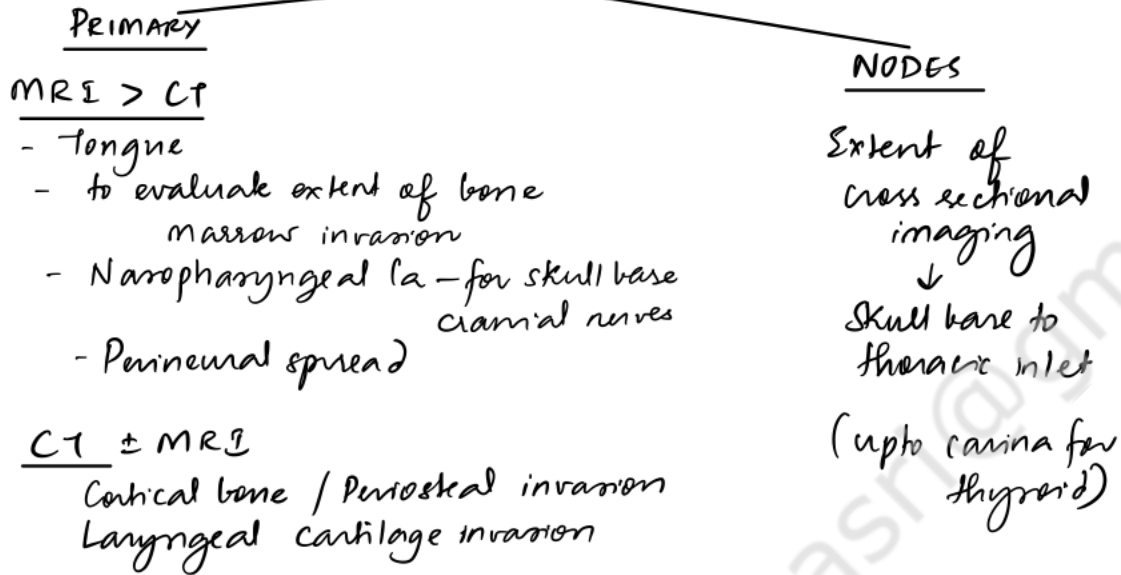 PRIMARY
MRI > CT
- Tongue
- to evaluate extent of bone
marrow invasion
- Nasopharyngeal Ca - for skull base
cranial nerves
- Perineural spread
CT ± MRI
Cortical bone / Periosteal invasion
Laryngeal cartilage invasion
NODES
Extent of
cross sectional
imaging
↓
Skull base to
thoracic inlet
(upto carina for
thyroid)
asri@gm